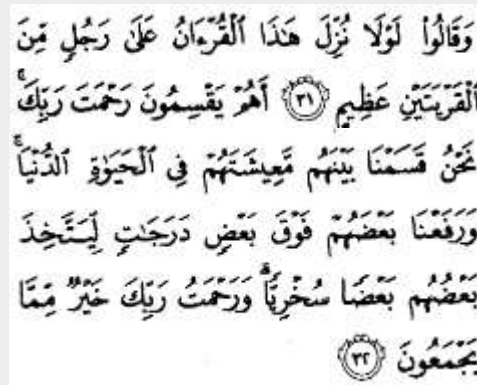 وَقَالُوا۟ لَوْلَا نُزِّلَ هَـٰذَا ٱلْقُرْءَانُ عَلَىٰ رَجُلٍ مِّنَ
ٱلْقَرْيَتَيْنِ عَظِيمٍ ٣١ أَهُمْ يَقْسِمُونَ رَحْمَتَ رَبِّكَ ۚ
نَحْنُ قَسَمْنَا بَيْنَهُم مَّعِيشَتَهُمْ فِى ٱلْحَيَوٰةِ ٱلدُّنْيَا ۚ
وَرَفَعْنَا بَعْضَهُمْ فَوْقَ بَعْضٍ دَرَجَـٰتٍ لِّيَتَّخِذَ
بَعْضُهُم بَعْضًا سُخْرِيًّا ۗ وَرَحْمَتُ رَبِّكَ خَيْرٌ مِّمَّا
يَجْمَعُونَ ٣٢